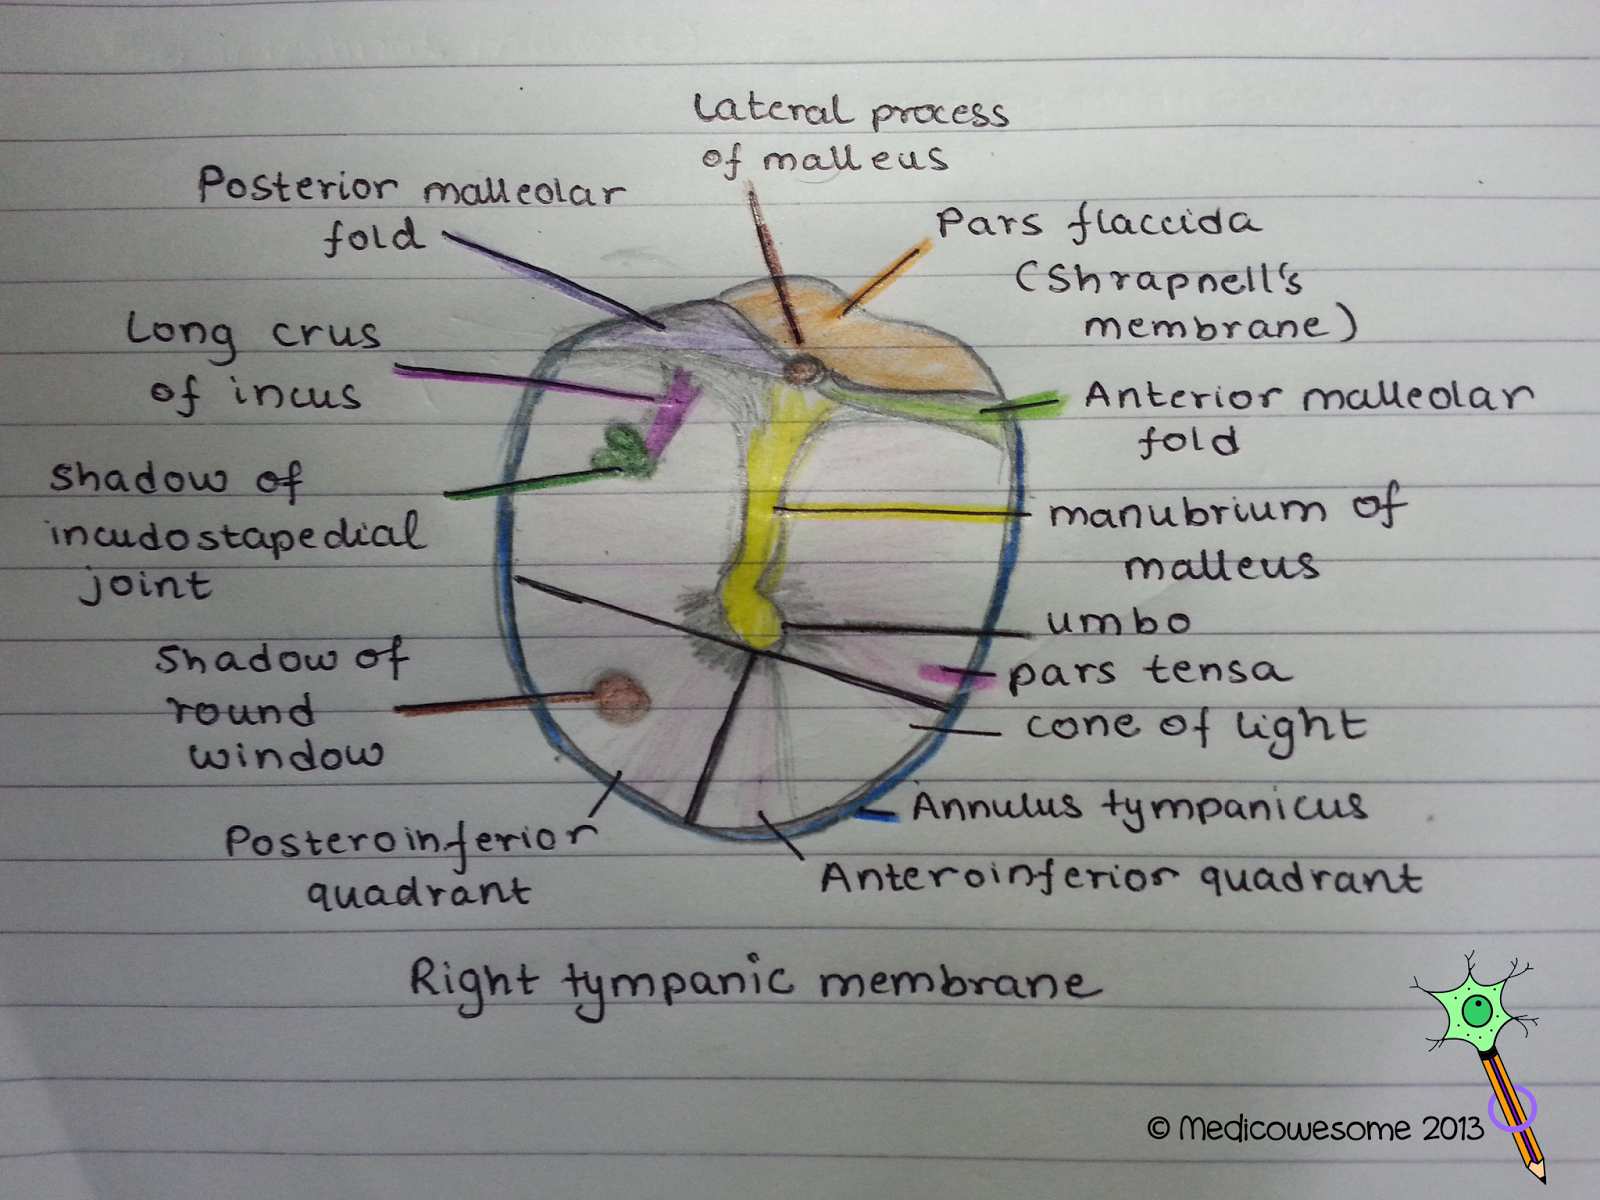 Lateral process
of malleus
Posterior malleolar
fold
Pars flaccida
(Shrapnell's
membrane)
Long crus
of incus
Anterior malleolar
fold
Shadow of
incudostapedial
joint
manubrium of
malleus
umbo
pars tensa
cone of light
Shadow of
round
window
Annulus tympanicus
Posteroinferior
quadrant
Anteroinferior quadrant
Right tympanic membrane
© Medicowesome 2013